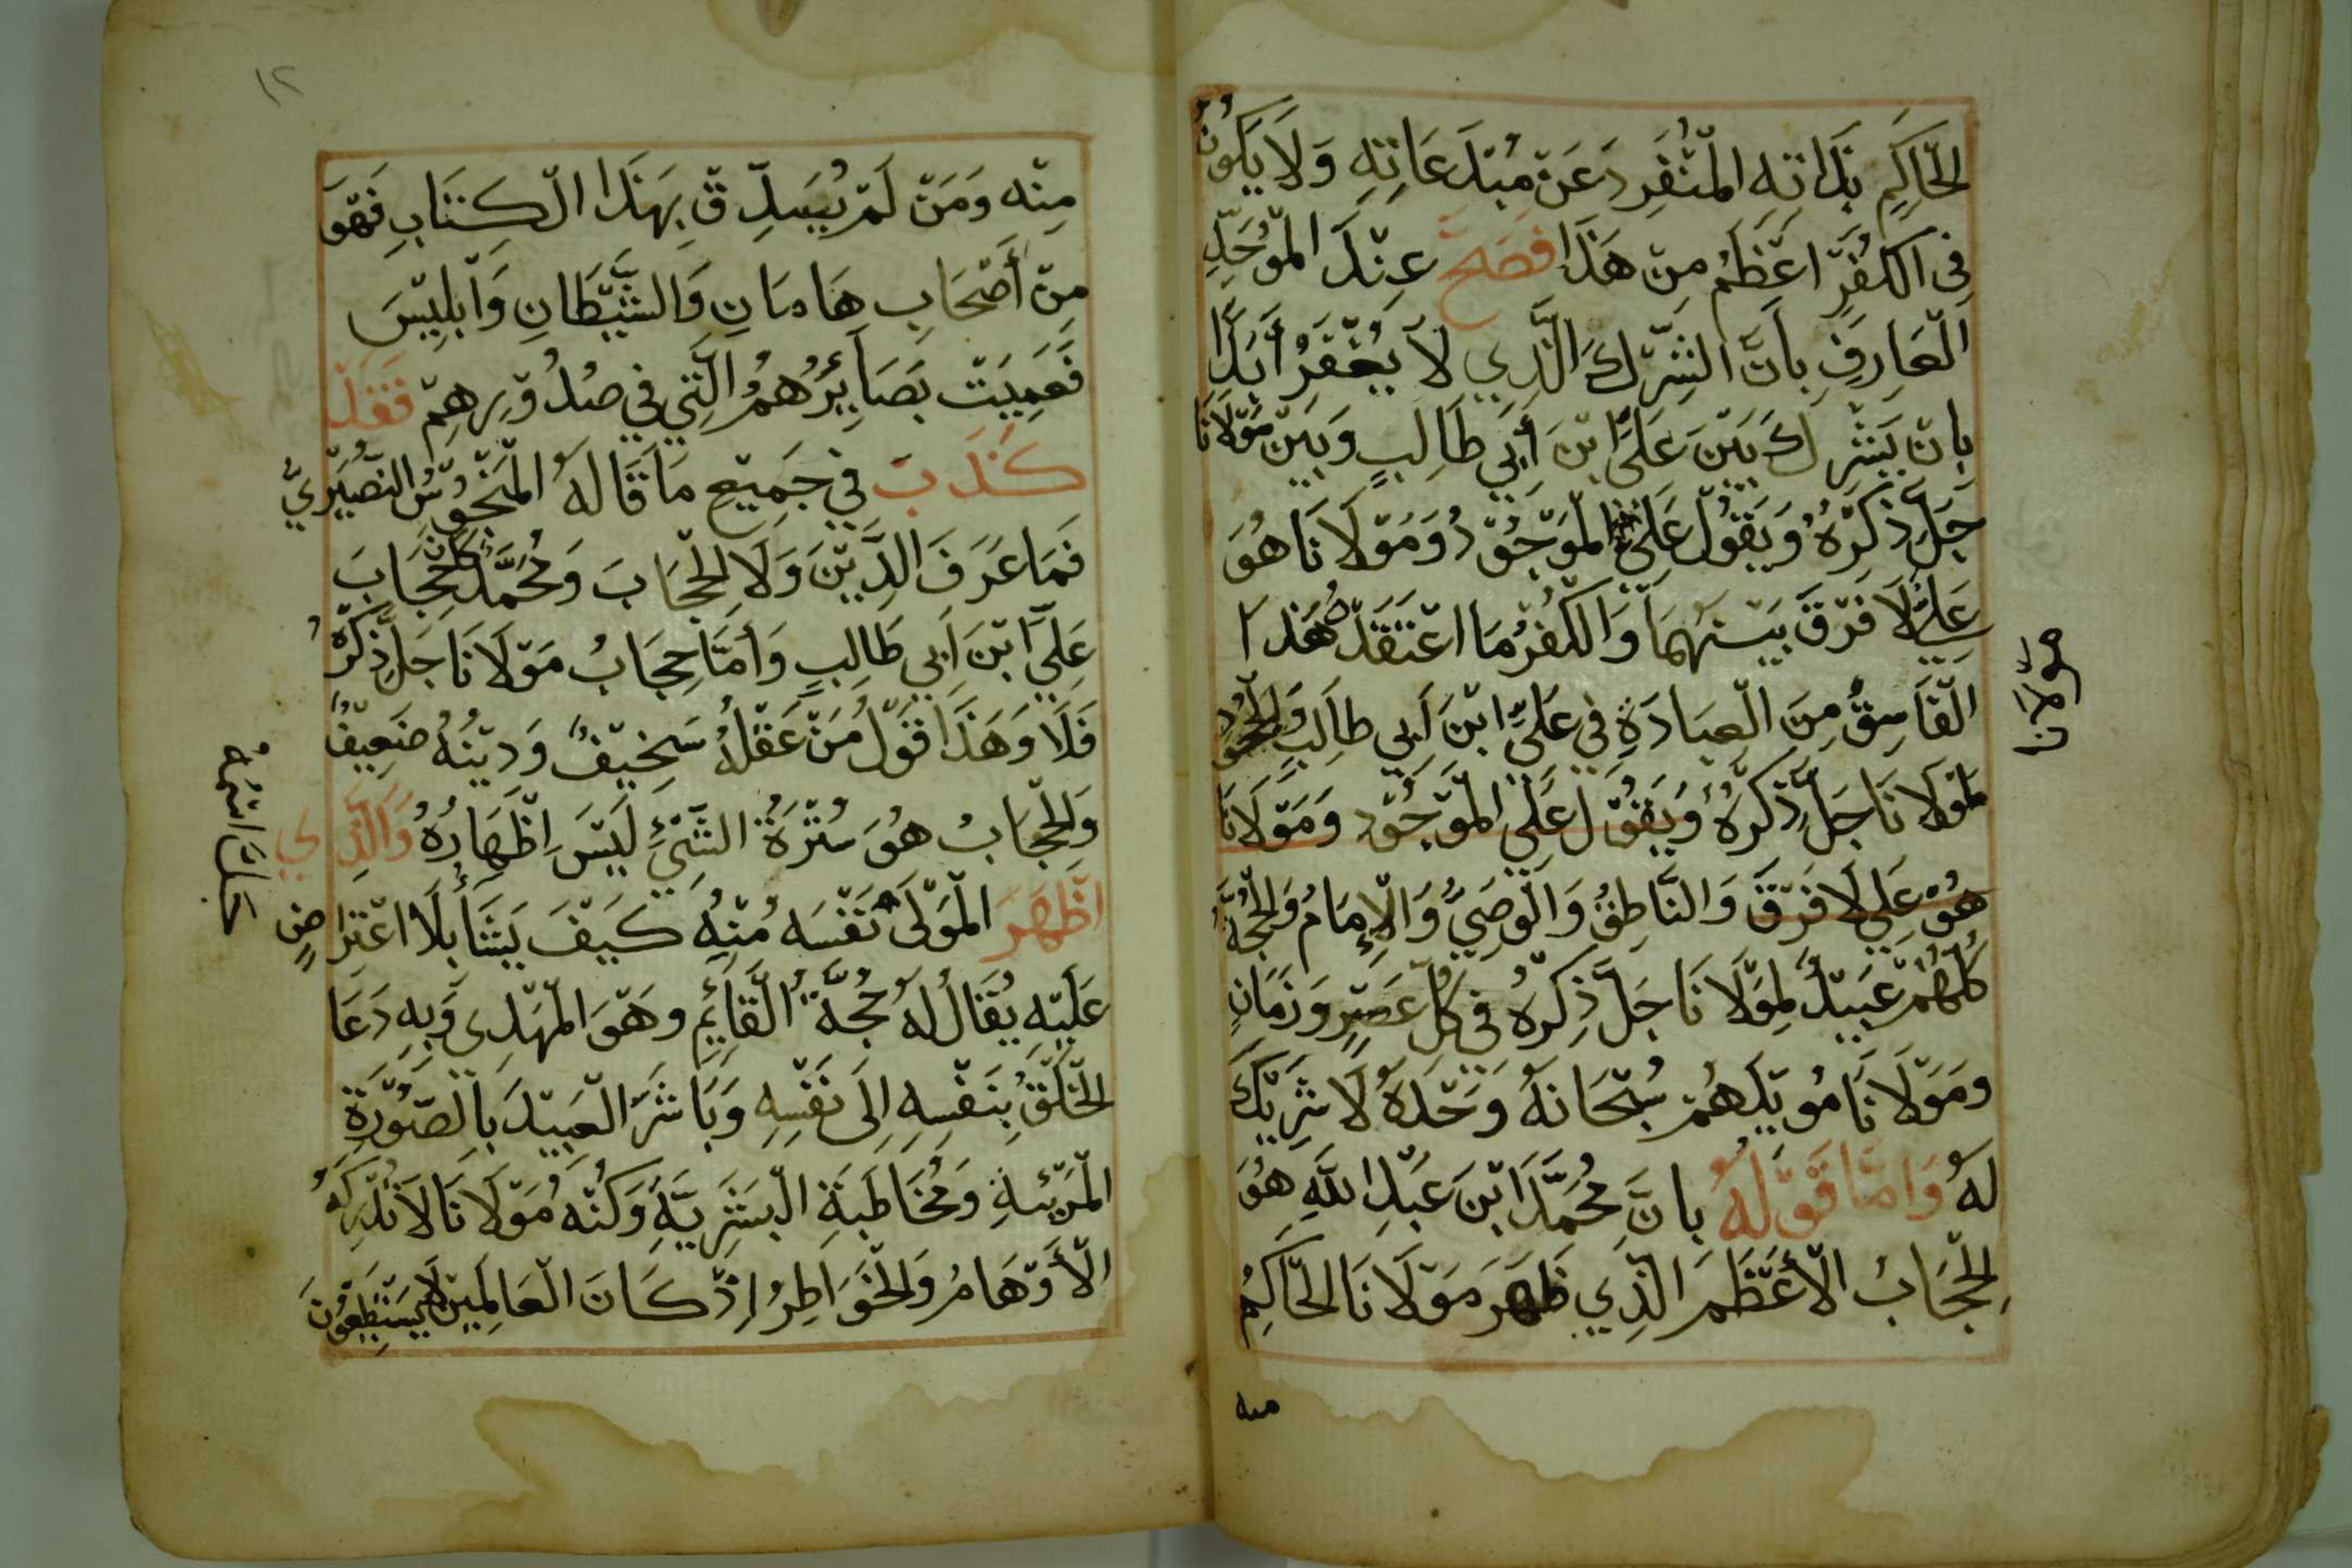 الحاكم بذاته المنفرد عن مبتدعاته ولا يكون
في الكفر اعظم من هذا فصح عند الموحد
العارف بان الشرك الذي لا يغفر أبدًا
بان يشرك بين علي ابن أبي طالب وبين مولانا
جل ذكره ويقول علي الموجود ومولانا هو
علي لا فرق بينهما والكفر ما اعتقده هذا
الفاسق من العبادة في علي ابن ابي طالب والجحود
لمولانا جل ذكره ويقول علي الموجود ومولانا
هو علي لا فرق والناطق والوصي والإمام والحجة
كلهم عبيد لمولانا جل ذكره في كل عصر وزمان
ومولانا مويدهم سبحانه وحده لا شريك
له واما قوله بان محمد ابن عبد الله هو
الحجاب الأعظم الذي ظهر مولانا الحاكم
منه
١٢
منه ومن لم يصدق بهذا الكتاب فهو
من أصحاب هامان والشيطان وابليس
فعميت بصائرهم التي في صدورهم فقد
كذب في جميع ما قاله المنجوس النصيري
فما عرف الدين ولا الحجاب ومحمد كان حجاب
علي ابن ابي طالب وأما حجاب مولانا جل ذكره
فلا وهذا قول من عقله سخيف ودينه ضعيف
والحجاب هو سترة الشيء ليس اظهاره والذي
اظهر المولى نفسه منه كيف يشأ بلا اعتراض
عليه يقال له حجة القائم وهو المهدي وبه دعا
الخلق بنفسه إلى نفسه وباشر العبيد بالصورة
المرئية ومخاطبة البشرية وكنه مولانا لا تدركه
الأوهام والخواطر إذ كان العالمين لا يستطيعون